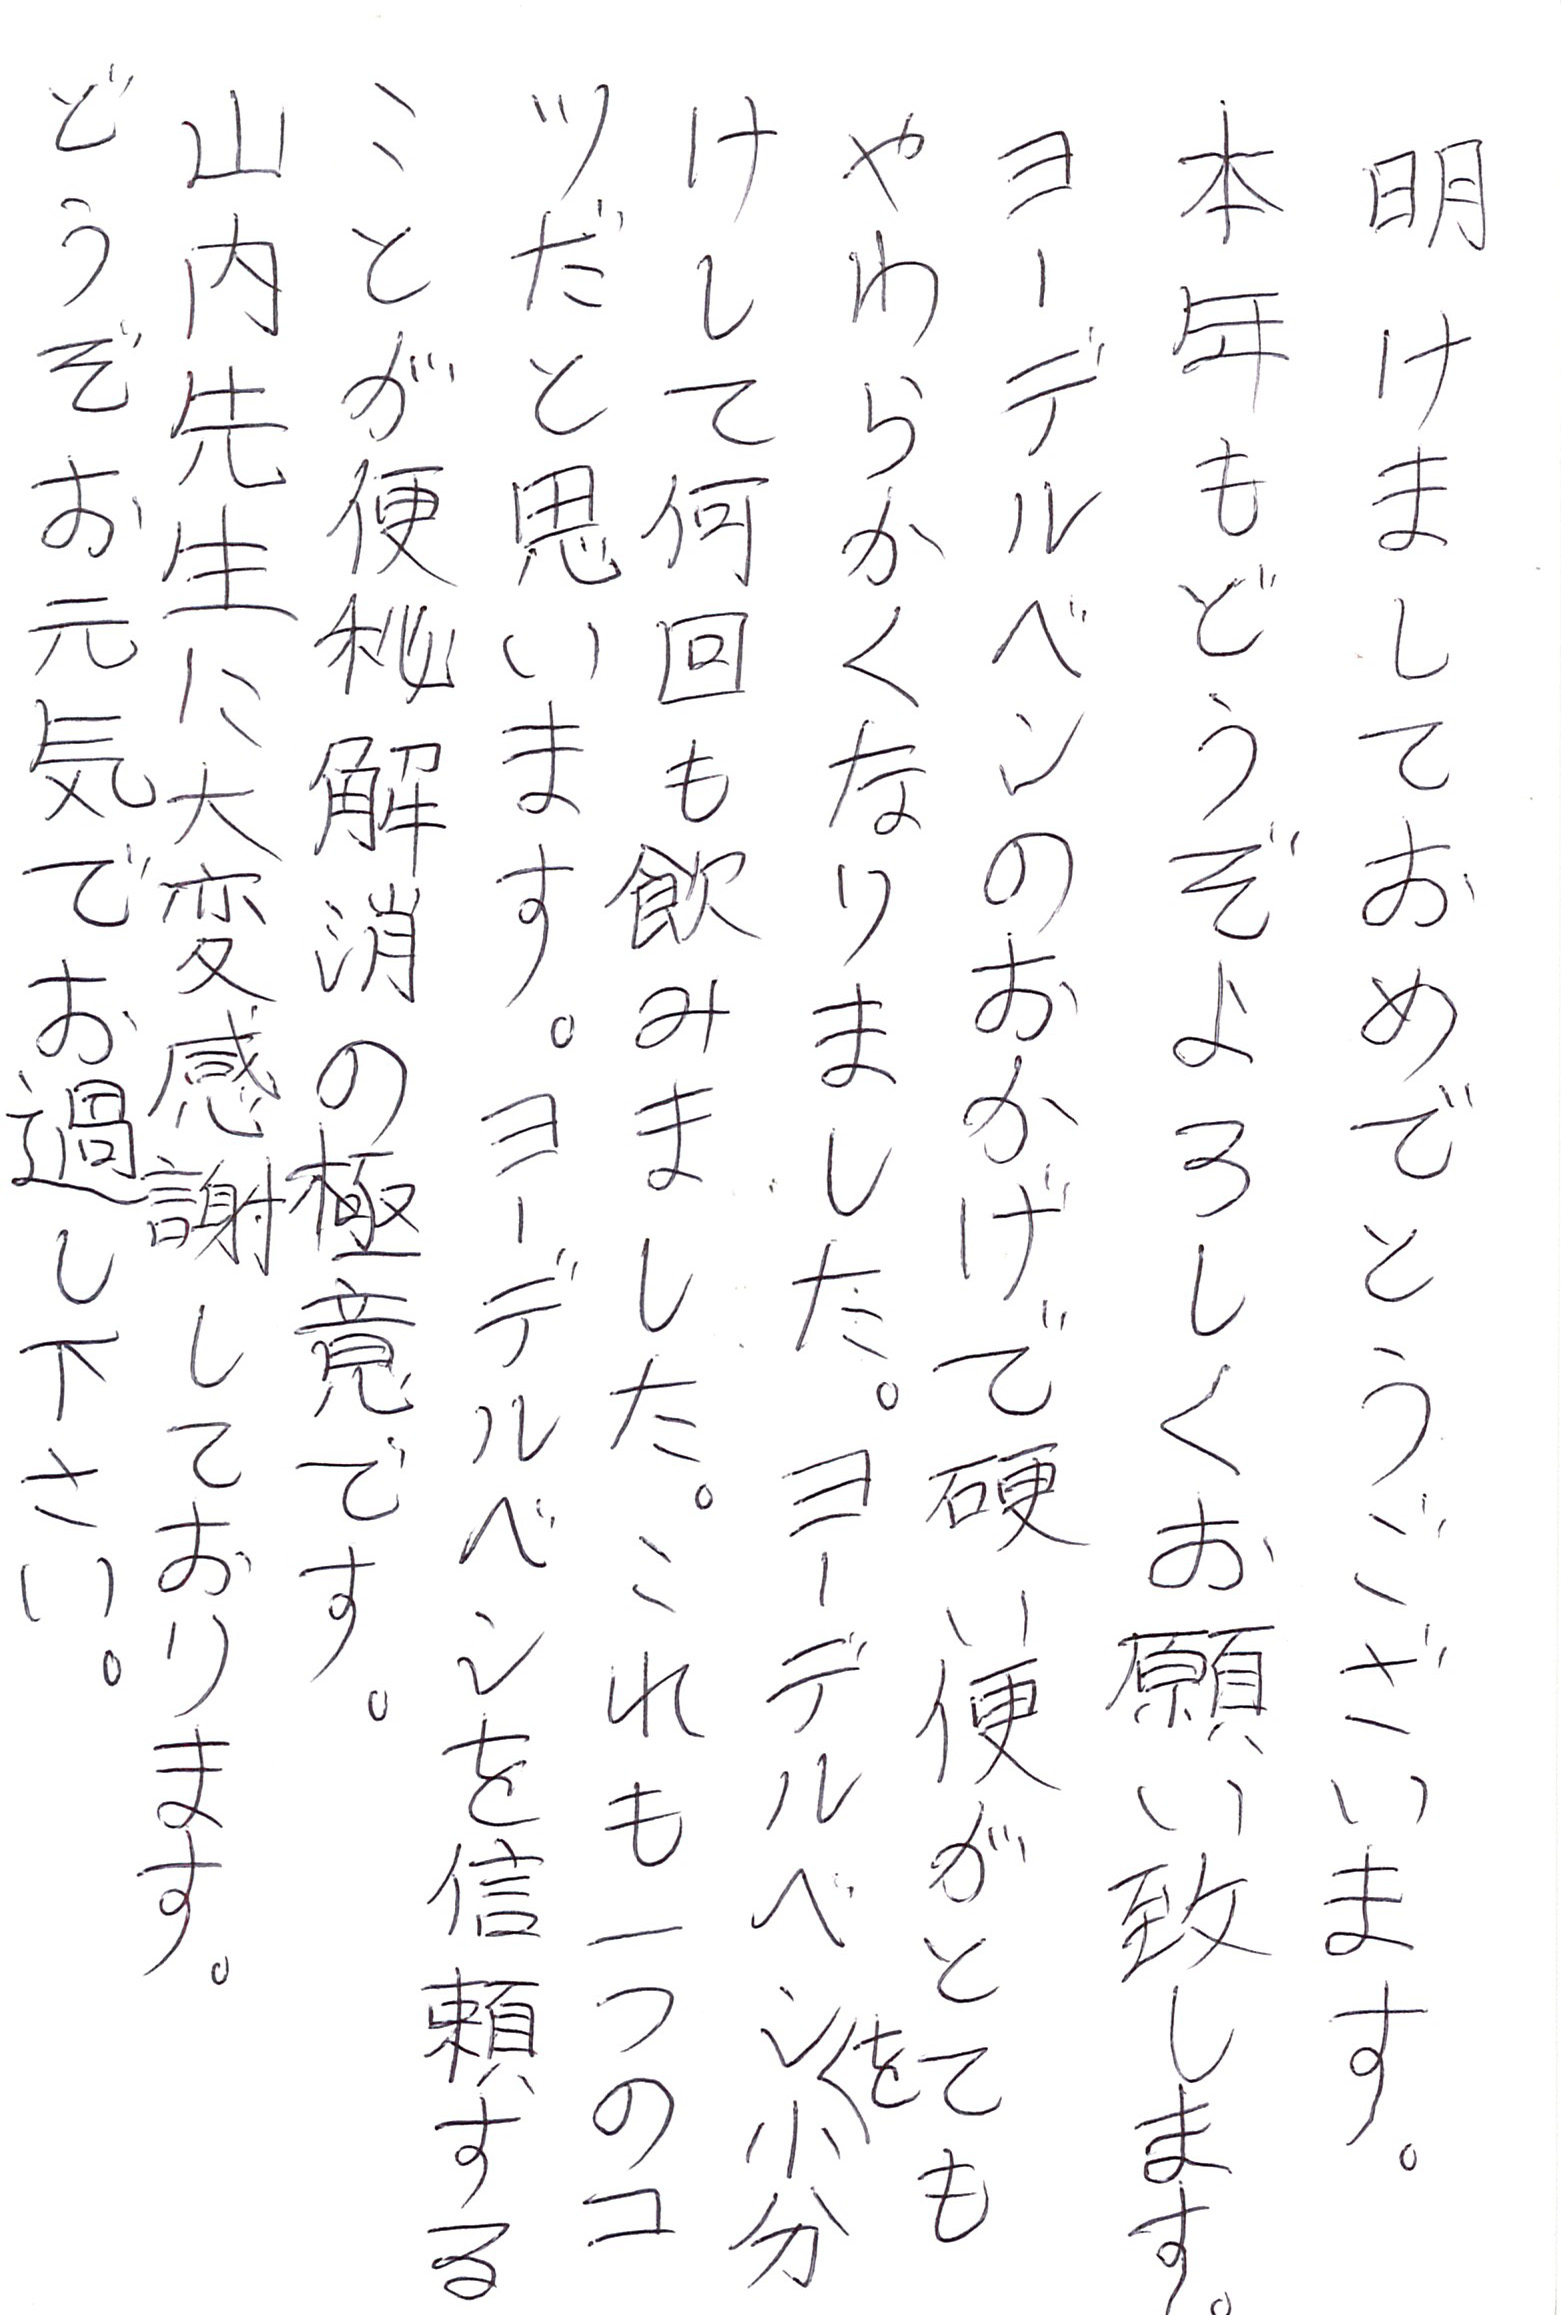 明けましておめでとうございます。
本年もどうぞよろしくお願い致します。
ヨーデルベンのおかげで硬い便がとても
やわらかくなりました。ヨーデルベンを小分
けして何回も飲みました。これも一つのコ
ツだと思います。ヨーデルベンを信頼する
ことが便秘解消の極意です。
山内先生に大変感謝しております。
どうぞお元気でお過し下さい。